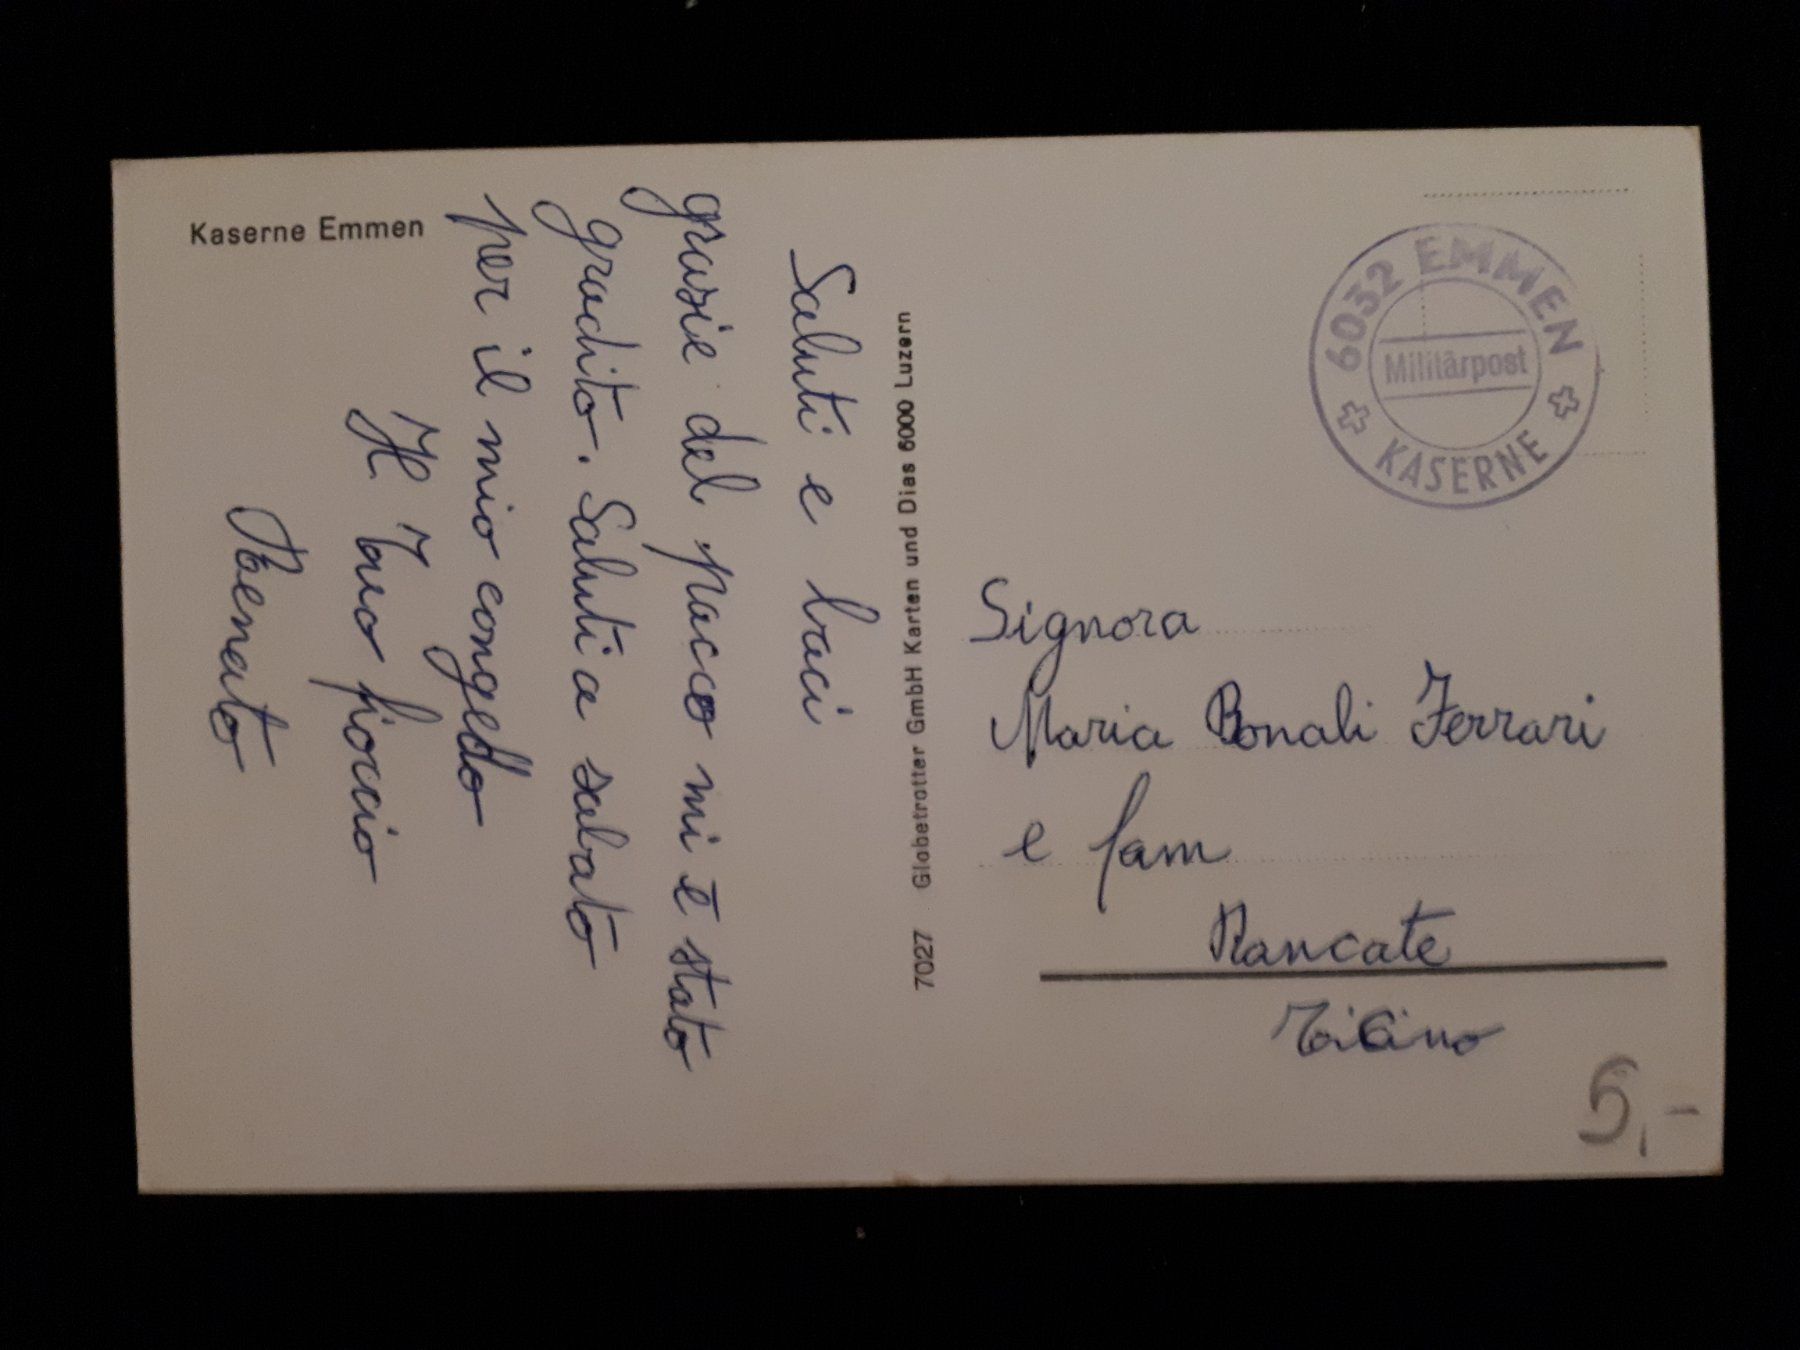 Kaserne Emmen
Saluti e baci
grasie del pacco mi è stato
gradito. Saluti a sabato
per il mio congedo
Il tuo fioccio
Renato
7027 Globetrotter GmbH Karten und Dias 6000 Luzern
6032 EMMEN
Militärpost
KASERNE
Signora
Maria Bonali Ferrari
e fam
Rancate
Ticino
5,-